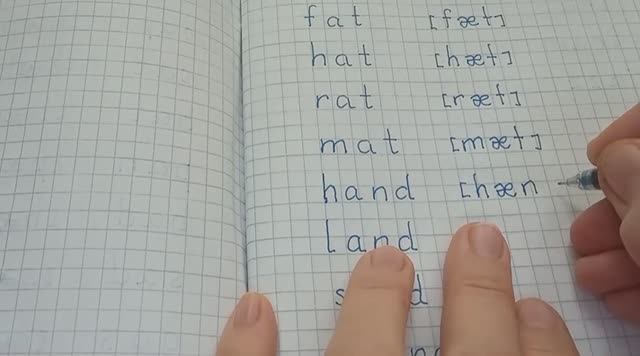 fat [fæt]
hat [hæt]
rat [ræt]
mat [mæt]
hand [hæn
land